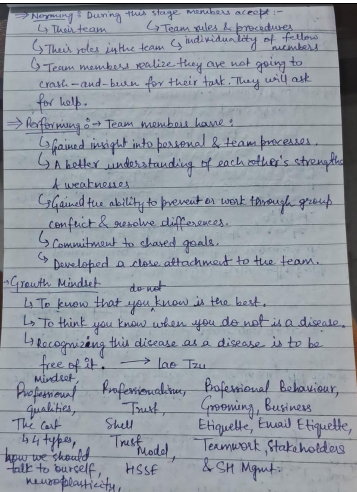 ⇒ Norming :- During this stage members accept :-
↳ Their team ↳ Team rules & procedures
↳ Their roles in the team ↳ individuality of fellow members
↳ Team members realize they are not going to
crash-and-burn for their task. They will ask
for help.
⇒ Performing :→ Team members have :
↳ Gained insight into personal & team processes.
↳ A better understanding of each other's strengths
& weaknesses
↳ Gained the ability to prevent or work through group
conflict & resolve differences.
↳ Commitment to shared goals.
↳ Developed a close attachment to the team.
→ Growth Mindset
↳ To know that you do not know is the best.
↳ To think you know when you do not is a disease.
↳ Recognizing this disease as a disease is to be
free of it. → Lao Tzu
Mindset,
Professional Professionalism, Professional Behaviour,
qualities, Trust, Grooming, Business
The Shell Etiquette, Email Etiquette,
4 types, Trust Model, Teamwork, Stakeholders
how we should talk to ourself, HSSF & SH Mgmt.
neuroplasticity,